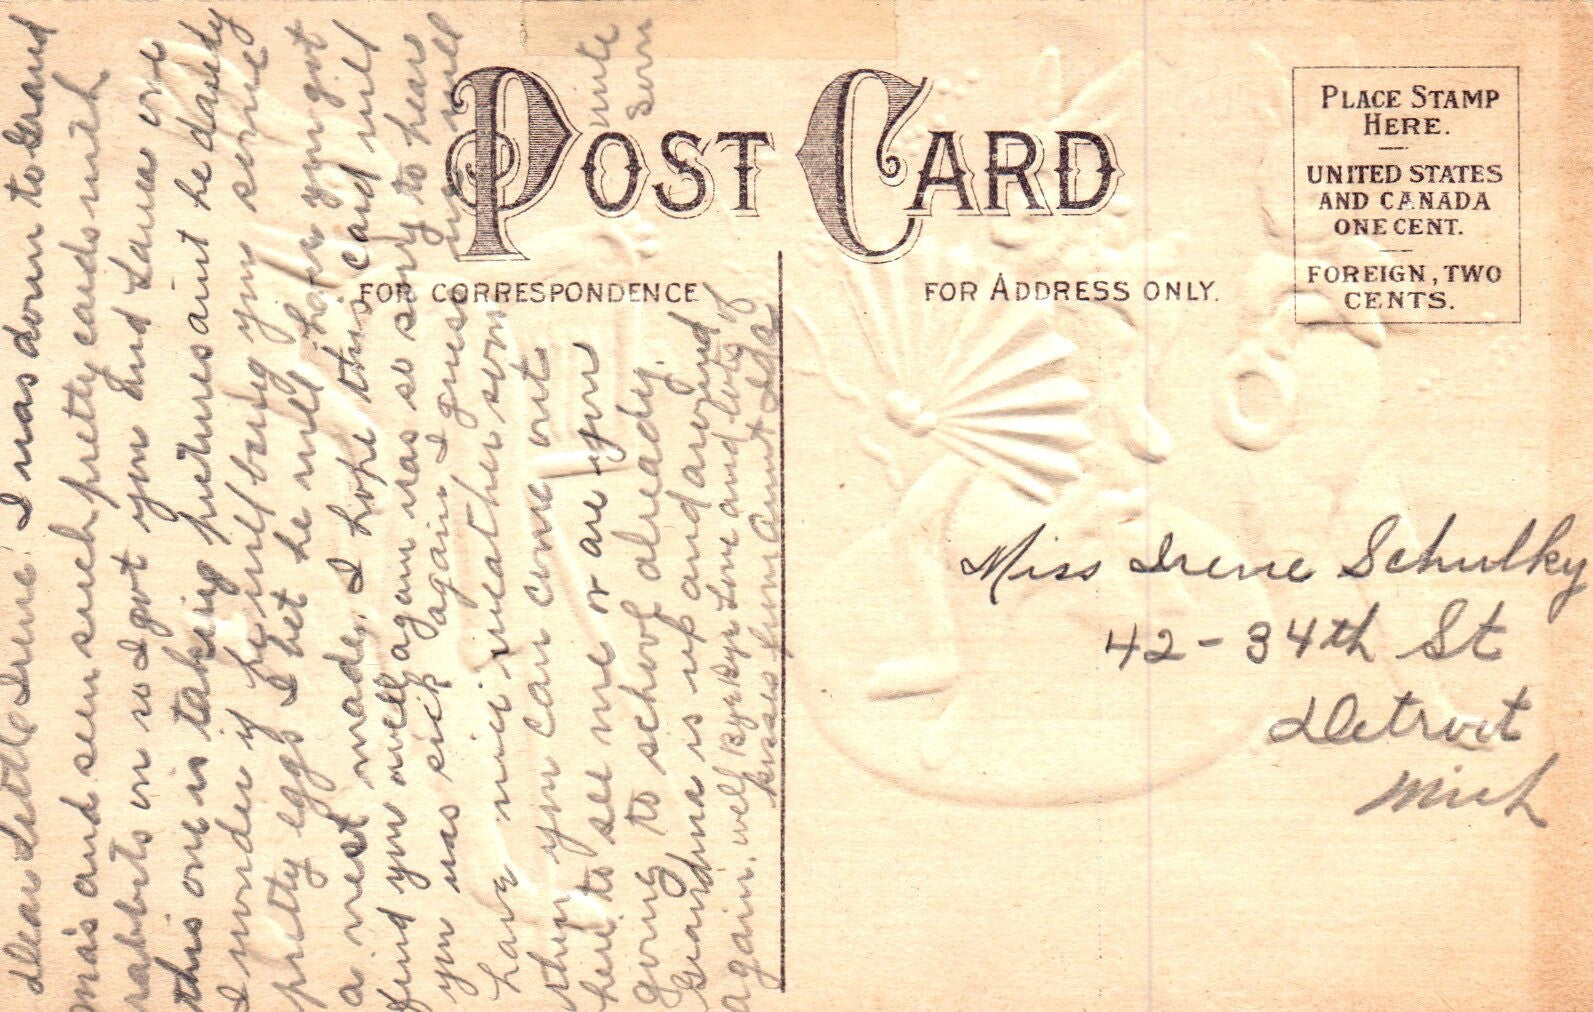 POST CARD
FOR CORRESPONDENCE
FOR ADDRESS ONLY.
PLACE STAMP
HERE.
UNITED STATES
AND CANADA
ONE CENT.
FOREIGN, TWO
CENTS.
Dear Little Irene. I was down to Grand
ma's and seen such pretty cards with
rabbits on so I got you and Laura one
this one is taking pictures aint he dandy
I wonder if he will bring you some
pretty eggs I bet he will have you got
a nest made. I hope this card will
find you well again was so sorry to hear
you was sick again I guess we will
have nice weather soon
then you can come out
here to see me or are you
going to school already.
Grandma is up and around
again. well bye bye Love and lots of
kisses from Aunt Ida
write
soon
Miss Irene Schulky
42-34th St
Detroit
Mich